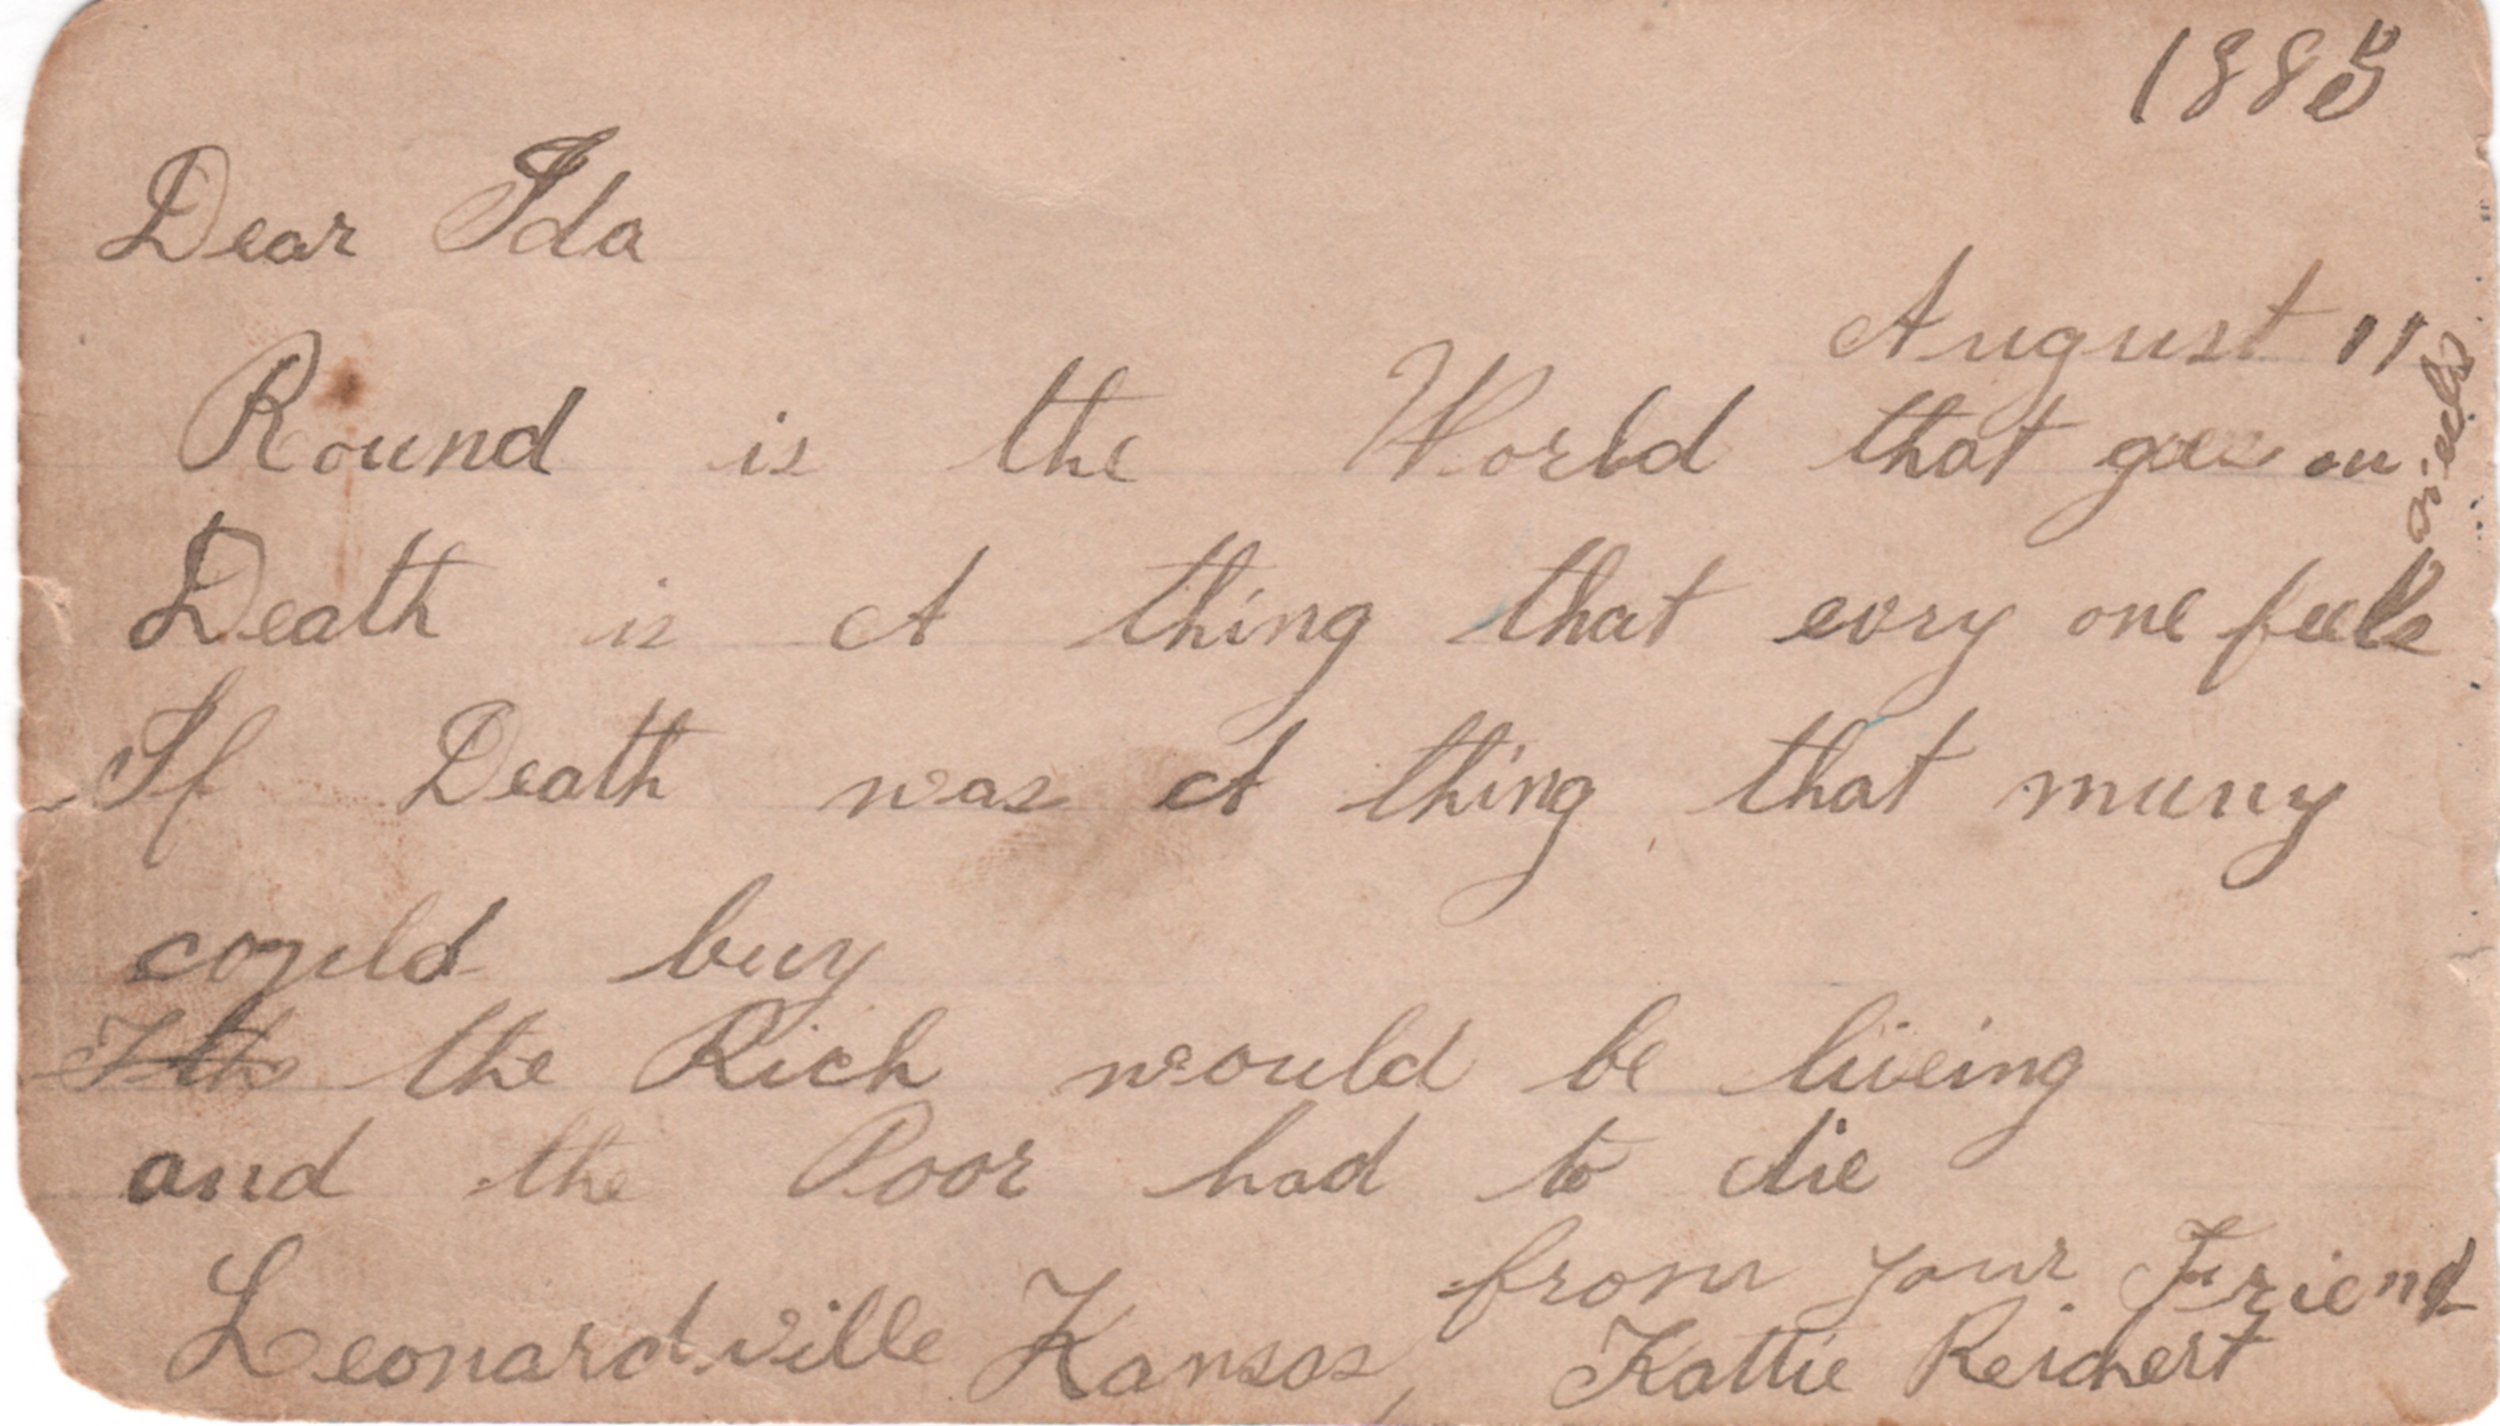 1885
Dear Ida
August 11
Round is the World that goes on wheels
Death is A thing that evry one feels
If Death was A thing that muny
could buy
the Rich would be liveing
and the Poor had to die
from your Friend
Leonardville Kansas, Kattie Reichert